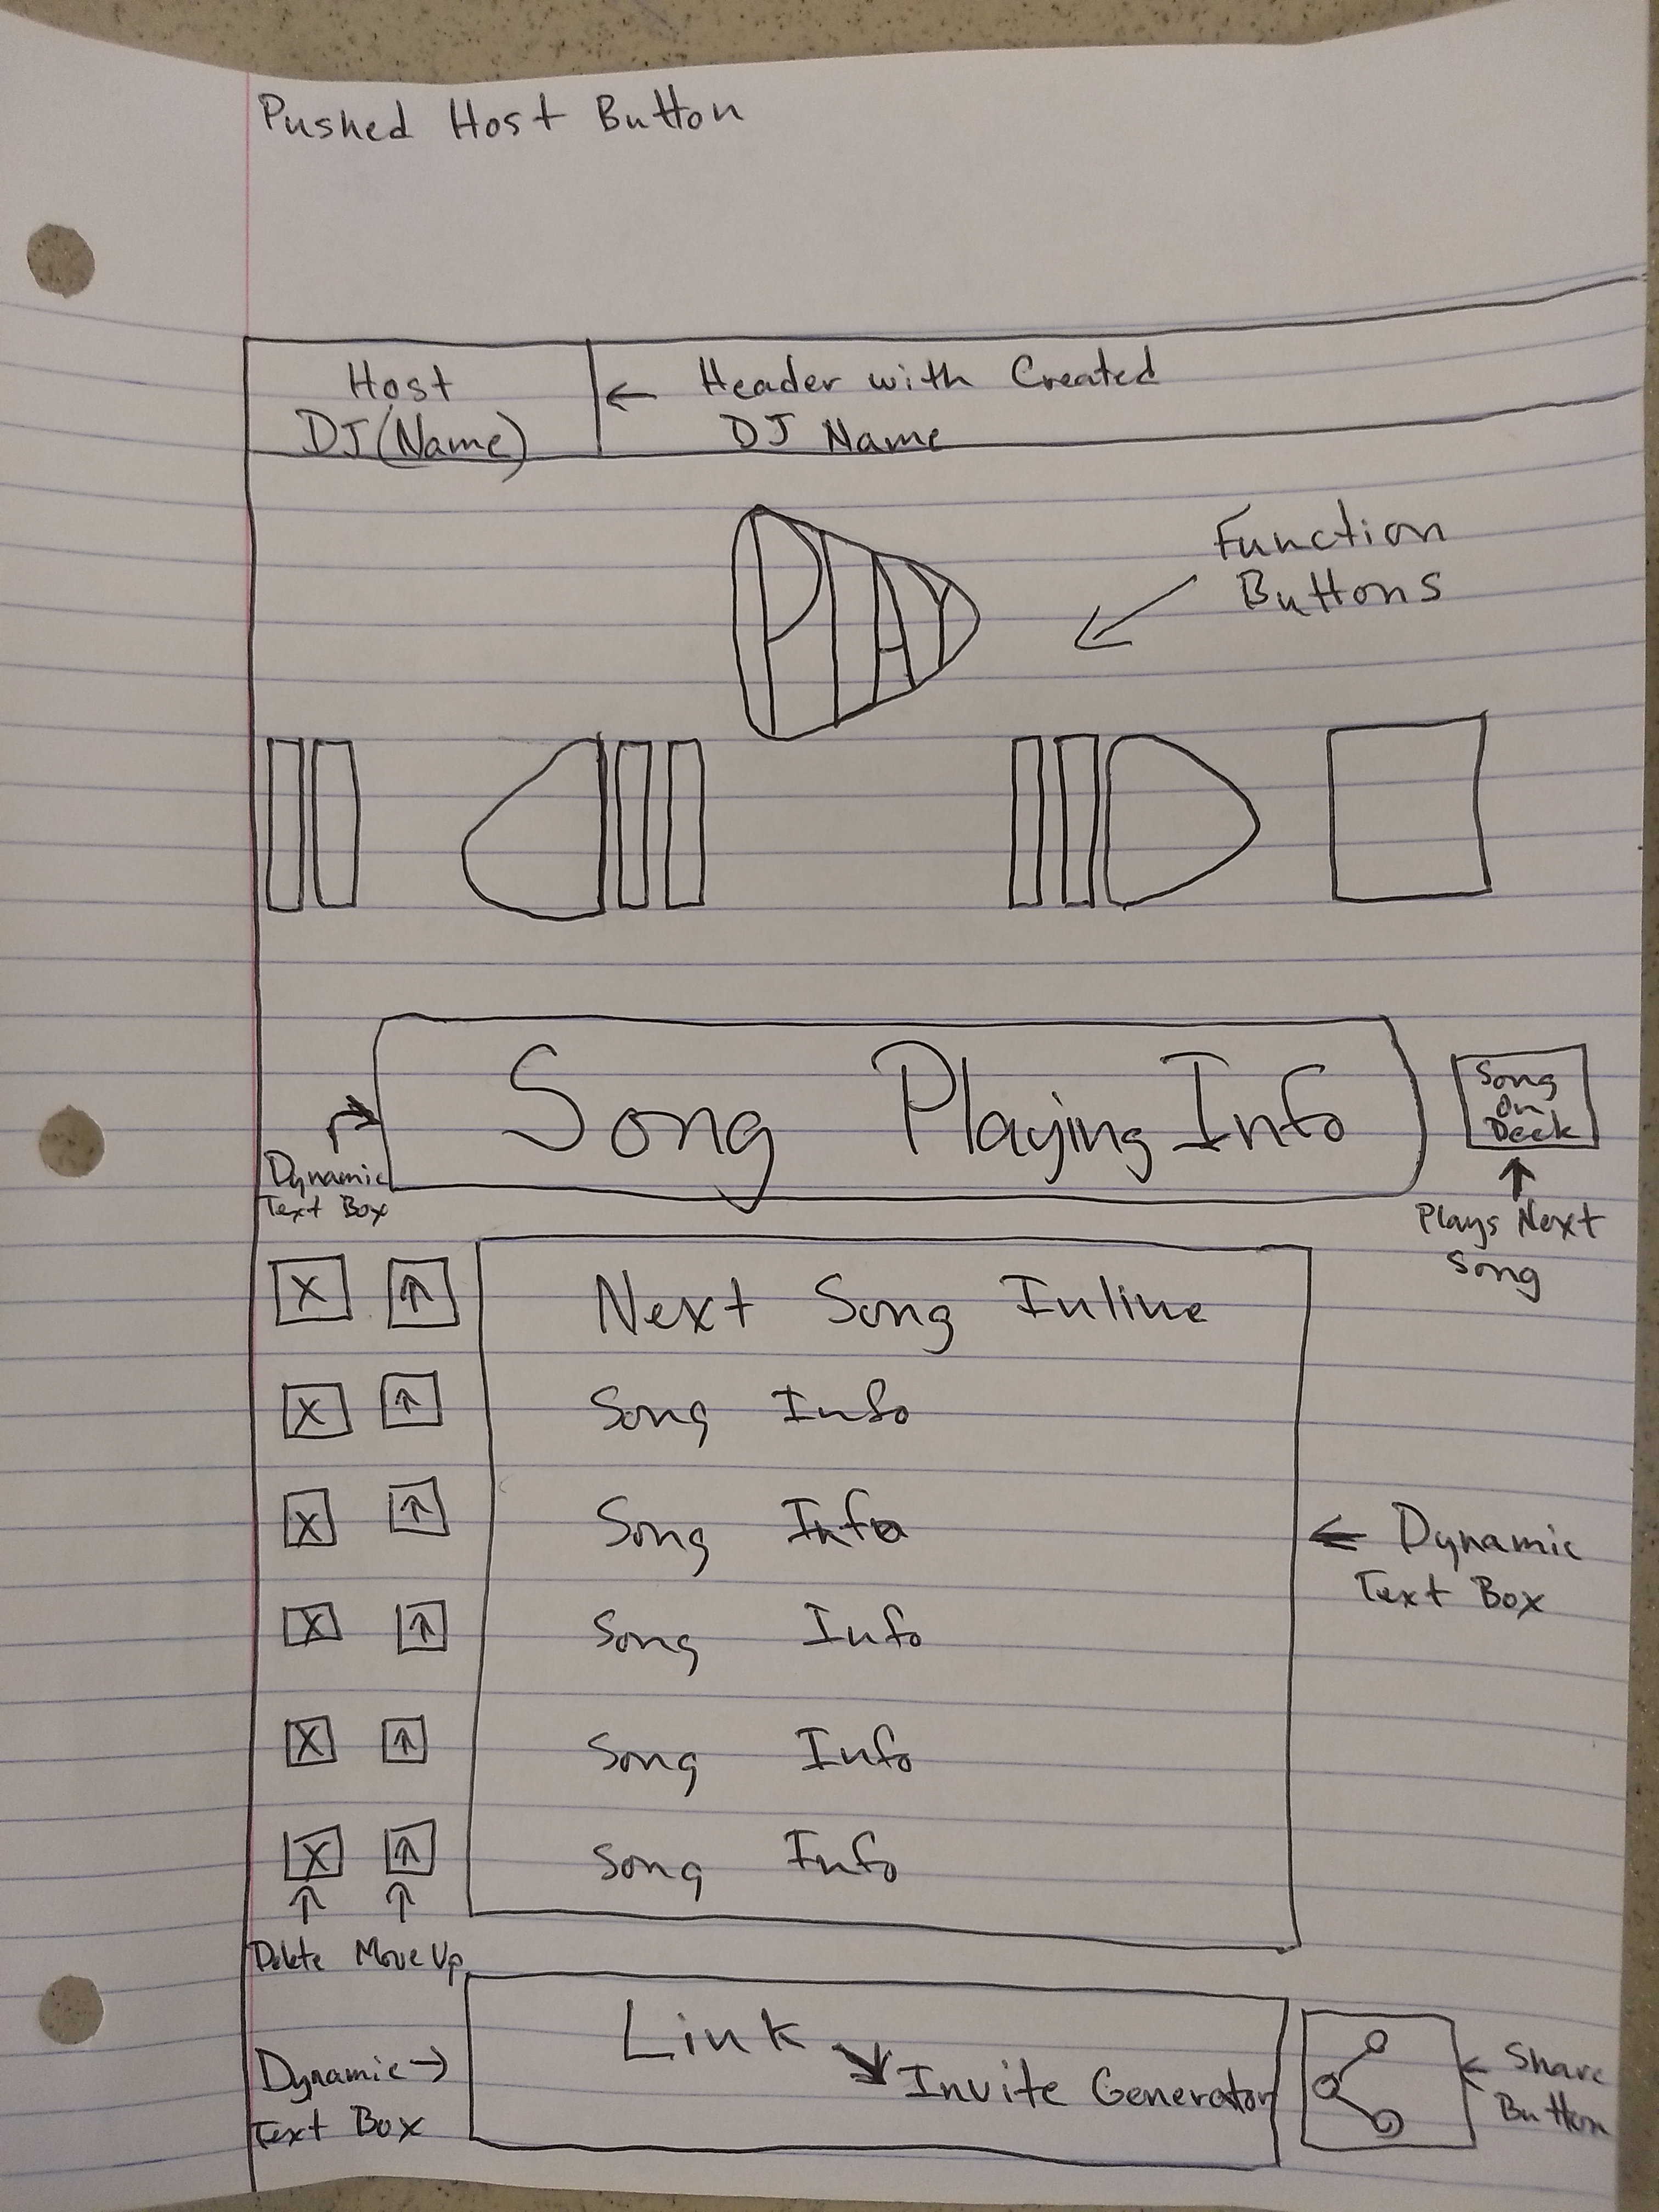 Pushed Host Button
Host
DJ(Name)
← Header with Created
DJ Name
PLAY
Function
Buttons
Song Playing Info
Song
On
Deck
Dynamic
Text Box
Plays Next
Song
X ↑ Next Song Inline
X ↑ Song Info
X ↑ Song Info
X ↑ Song Info
X ↑ Song Info
X ↑ Song Info
← Dynamic
Text Box
Delete Move Up
Link
Invite Generator
Dynamic →
Text Box
← Share
Button